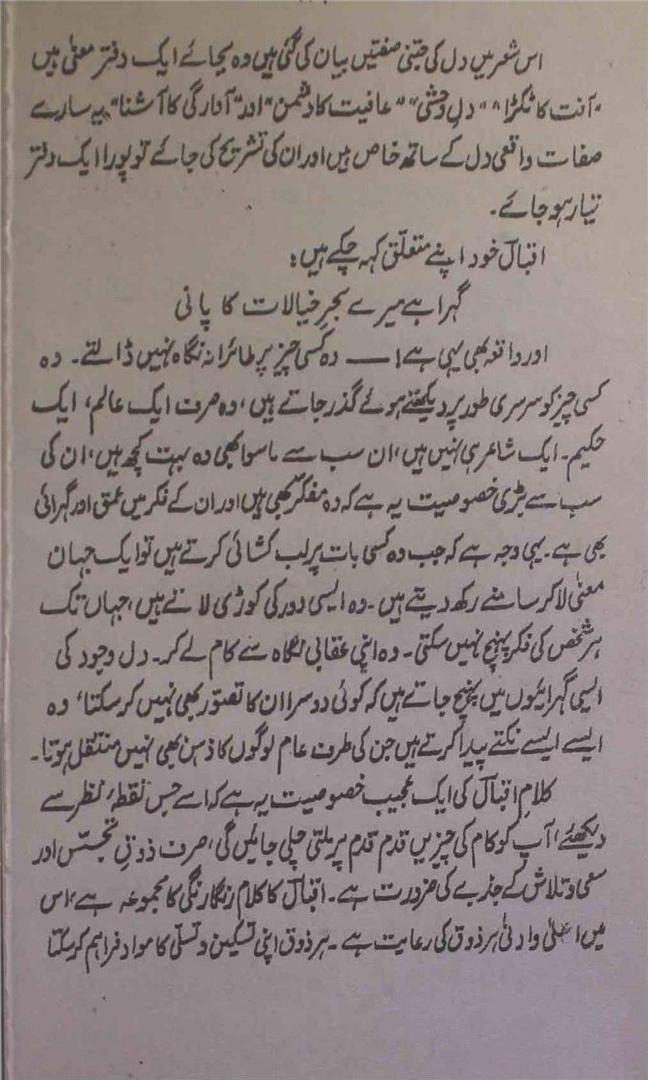 اس شعر میں دل کی جتنی صفتیں بیان کی گئی ہیں وہ بجائے ایک دفتر معنیٰ ہیں
"آفت کا ٹکڑا" "دلِ وحشی" "عافیت کا دشمن" اور "آوارگی کا آشنا" یہ سارے
صفات واقعی دل کے ساتھ خاص ہیں اور ان کی تشریح کی جائے تو پورا ایک دفتر
تیار ہو جائے۔
اقبالؔ خود اپنے متعلّق کہہ چکے ہیں:
گہرا ہے میرے بحرِ خیالات کا پانی
اور واقعہ بھی یہی ہے! — وہ کسی چیز پر طائرانہ نگاہ نہیں ڈالتے۔ وہ
کسی چیز کو سرسری طور پر دیکھتے ہوئے گذر جاتے ہیں، وہ صرف ایک عالم، ایک
حکیم۔ ایک شاعر ہی نہیں ہیں، ان سب سے ماسوا بھی وہ بہت کچھ ہیں، ان کی
سب سے بڑی خصوصیت یہ ہے کہ وہ مفکّر بھی ہیں اور ان کے فکر میں عمق اور گہرائی
بھی ہے۔ یہی وجہ ہے کہ جب وہ کسی بات پر لب کشائی کرتے ہیں تو ایک جہان
معنیٰ لا کر سامنے رکھ دیتے ہیں۔ وہ ایسی دور کی کوڑی لاتے ہیں، جہاں تک
ہر شخص کی فکر پہنچ نہیں سکتی۔ وہ اپنی عقابی نگاہ سے کام لے کر۔ دل وجود کی
ایسی گہرائیوں میں پہنچ جاتے ہیں کہ کوئی دوسرا ان کا تصوّر بھی نہیں کر سکتا، وہ
ایسے ایسے نکتے پیدا کرتے ہیں جن کی طرف عام لوگوں کا ذہن بھی نہیں منتقل ہوتا۔
کلامِ اقبالؔ کی ایک عجیب خصوصیت یہ ہے کہ اسے جس نقطۂ نظر سے
دیکھئے، آپ کو کام کی چیزیں قدم قدم پر ملتی چلی جائیں گی، صرف ذوقِ تجسّس اور
سعی و تلاش کے جذبے کی ضرورت ہے۔ اقبالؔ کا کلام رنگارنگی کا مجموعہ ہے، اس
میں اعلیٰ و ادنیٰ ہر ذوق کی رعایت ہے۔ ہر ذوق اپنی تسکین و تسلّی کا مواد فراہم کر سکتا